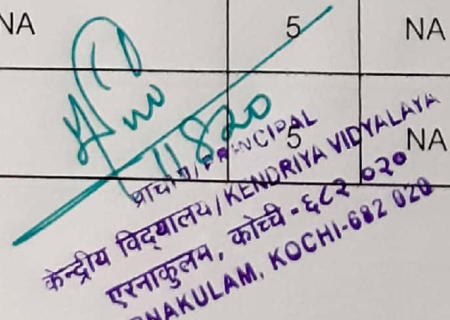 NA 5 NA
11820
5 NA
प्राचार्य/PRINCIPAL
केन्द्रीय विद्यालय/KENDRIYA VIDYALAYA
एरनाकुलम, कोच्ची-६८२ ०२०
RNAKULAM, KOCHI-682 020